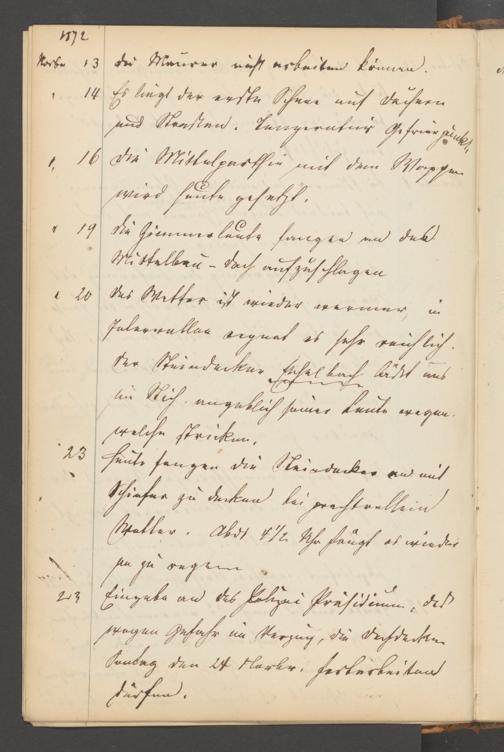 1872
Novbr 13 die Maurer nicht arbeiten können.
" 14 Es liegt der erste Schnee auf Dächern
und Straßen. Temperatur Gefrierpunkt.
" 16 Die Mittelparthie mit dem Wappen
wird heute gesetzt.
" 19 Die Zimmerleute fangen an das
Mittelbau-Dach aufzuschlagen
" 20 Das Wetter ist wieder wärmer, in
Intervallen regnet es sehr reichlich.
Der Steindecker Eschelbach läßt uns
im Stich angeblich seiner Leute wegen
welche stricken.
23 Heute fangen die Steindecker an mit
Schiefer zu decken bei prachtvollem
Wetter. Abds 4 1/2 Uhr fängt es wieder
an zu regnen
23 Eingabe an das Polizei Präsidium, daß
wegen Gefahr im Verzug, die Dachdecker
Sonntag den 24 Novbr. fortarbeiten
dürfen.